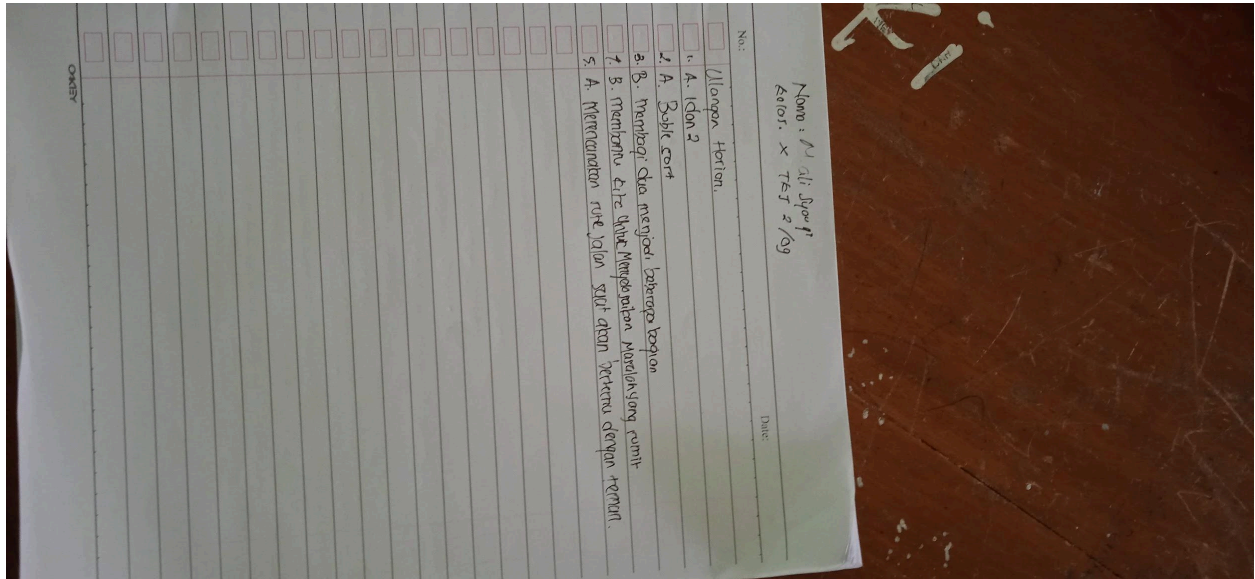 Nama : M ali Syauqi
Kelas. X TKJ 2 /09
No.:
Date:
Ulangan Harian.
1. A. 1 dan 2
2. A. Buble sort
3. B. membagi dua menjadi beberapa bagian
4. B. membantu kita untuk Menyelesaikan Masalah yang rumit
5. A. Merencanakan rute jalan saat akan bertemu dengan teman.
OKEY